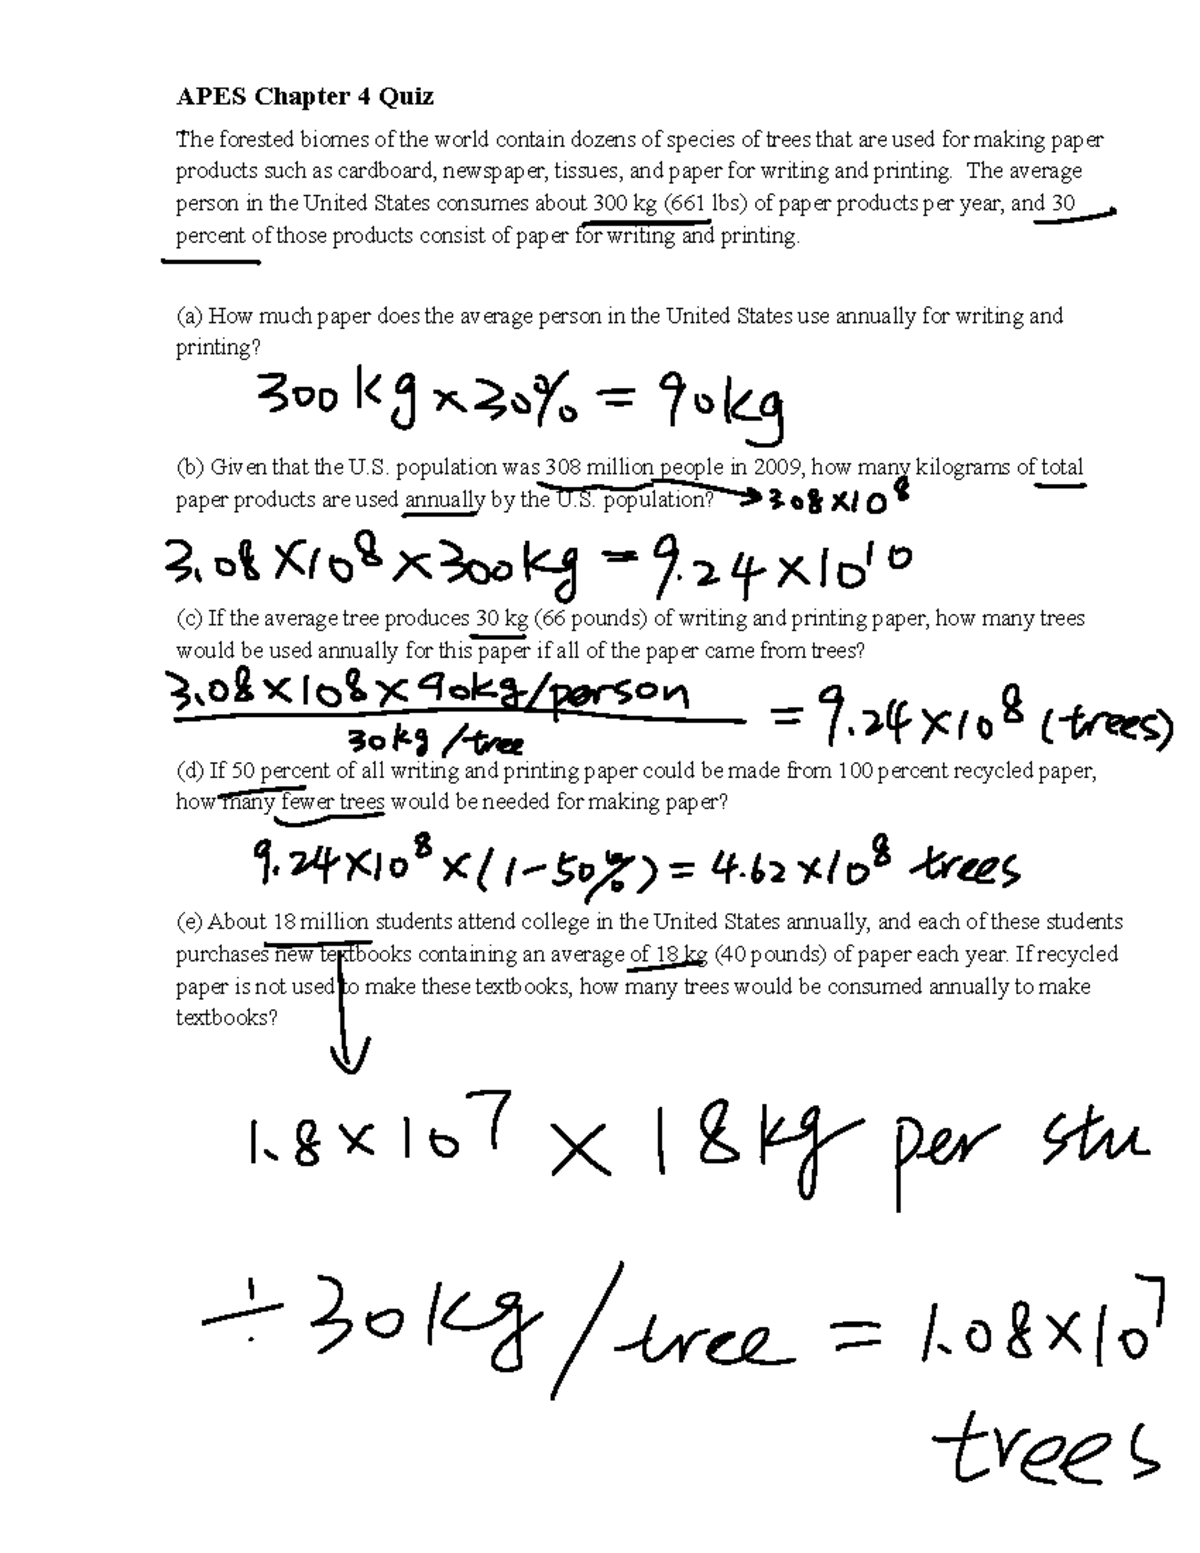 APES Chapter 4 Quiz
The forested biomes of the world contain dozens of species of trees that are used for making paper
products such as cardboard, newspaper, tissues, and paper for writing and printing. The average
person in the United States consumes about 300 kg (661 lbs) of paper products per year, and 30
percent of those products consist of paper for writing and printing.
(a) How much paper does the average person in the United States use annually for writing and
printing?
300kg×30%=90kg
(b) Given that the U.S. population was 308 million people in 2009, how many kilograms of total
paper products are used annually by the U.S. population? →3.08×10⁸
3.08×10⁸×300kg=9.24×10¹⁰
(c) If the average tree produces 30 kg (66 pounds) of writing and printing paper, how many trees
would be used annually for this paper if all of the paper came from trees?
3.08×10⁸×90kg/person
= 9.24×10⁸ (trees)
30kg/tree
(d) If 50 percent of all writing and printing paper could be made from 100 percent recycled paper,
how many fewer trees would be needed for making paper?
9.24×10⁸×(1-50%)=4.62×10⁸ trees
(e) About 18 million students attend college in the United States annually, and each of these students
purchases new textbooks containing an average of 18 kg (40 pounds) of paper each year. If recycled
paper is not used to make these textbooks, how many trees would be consumed annually to make
textbooks?
1.8×10⁷ × 18kg per stu
÷30kg/tree = 1.08×10⁷
trees